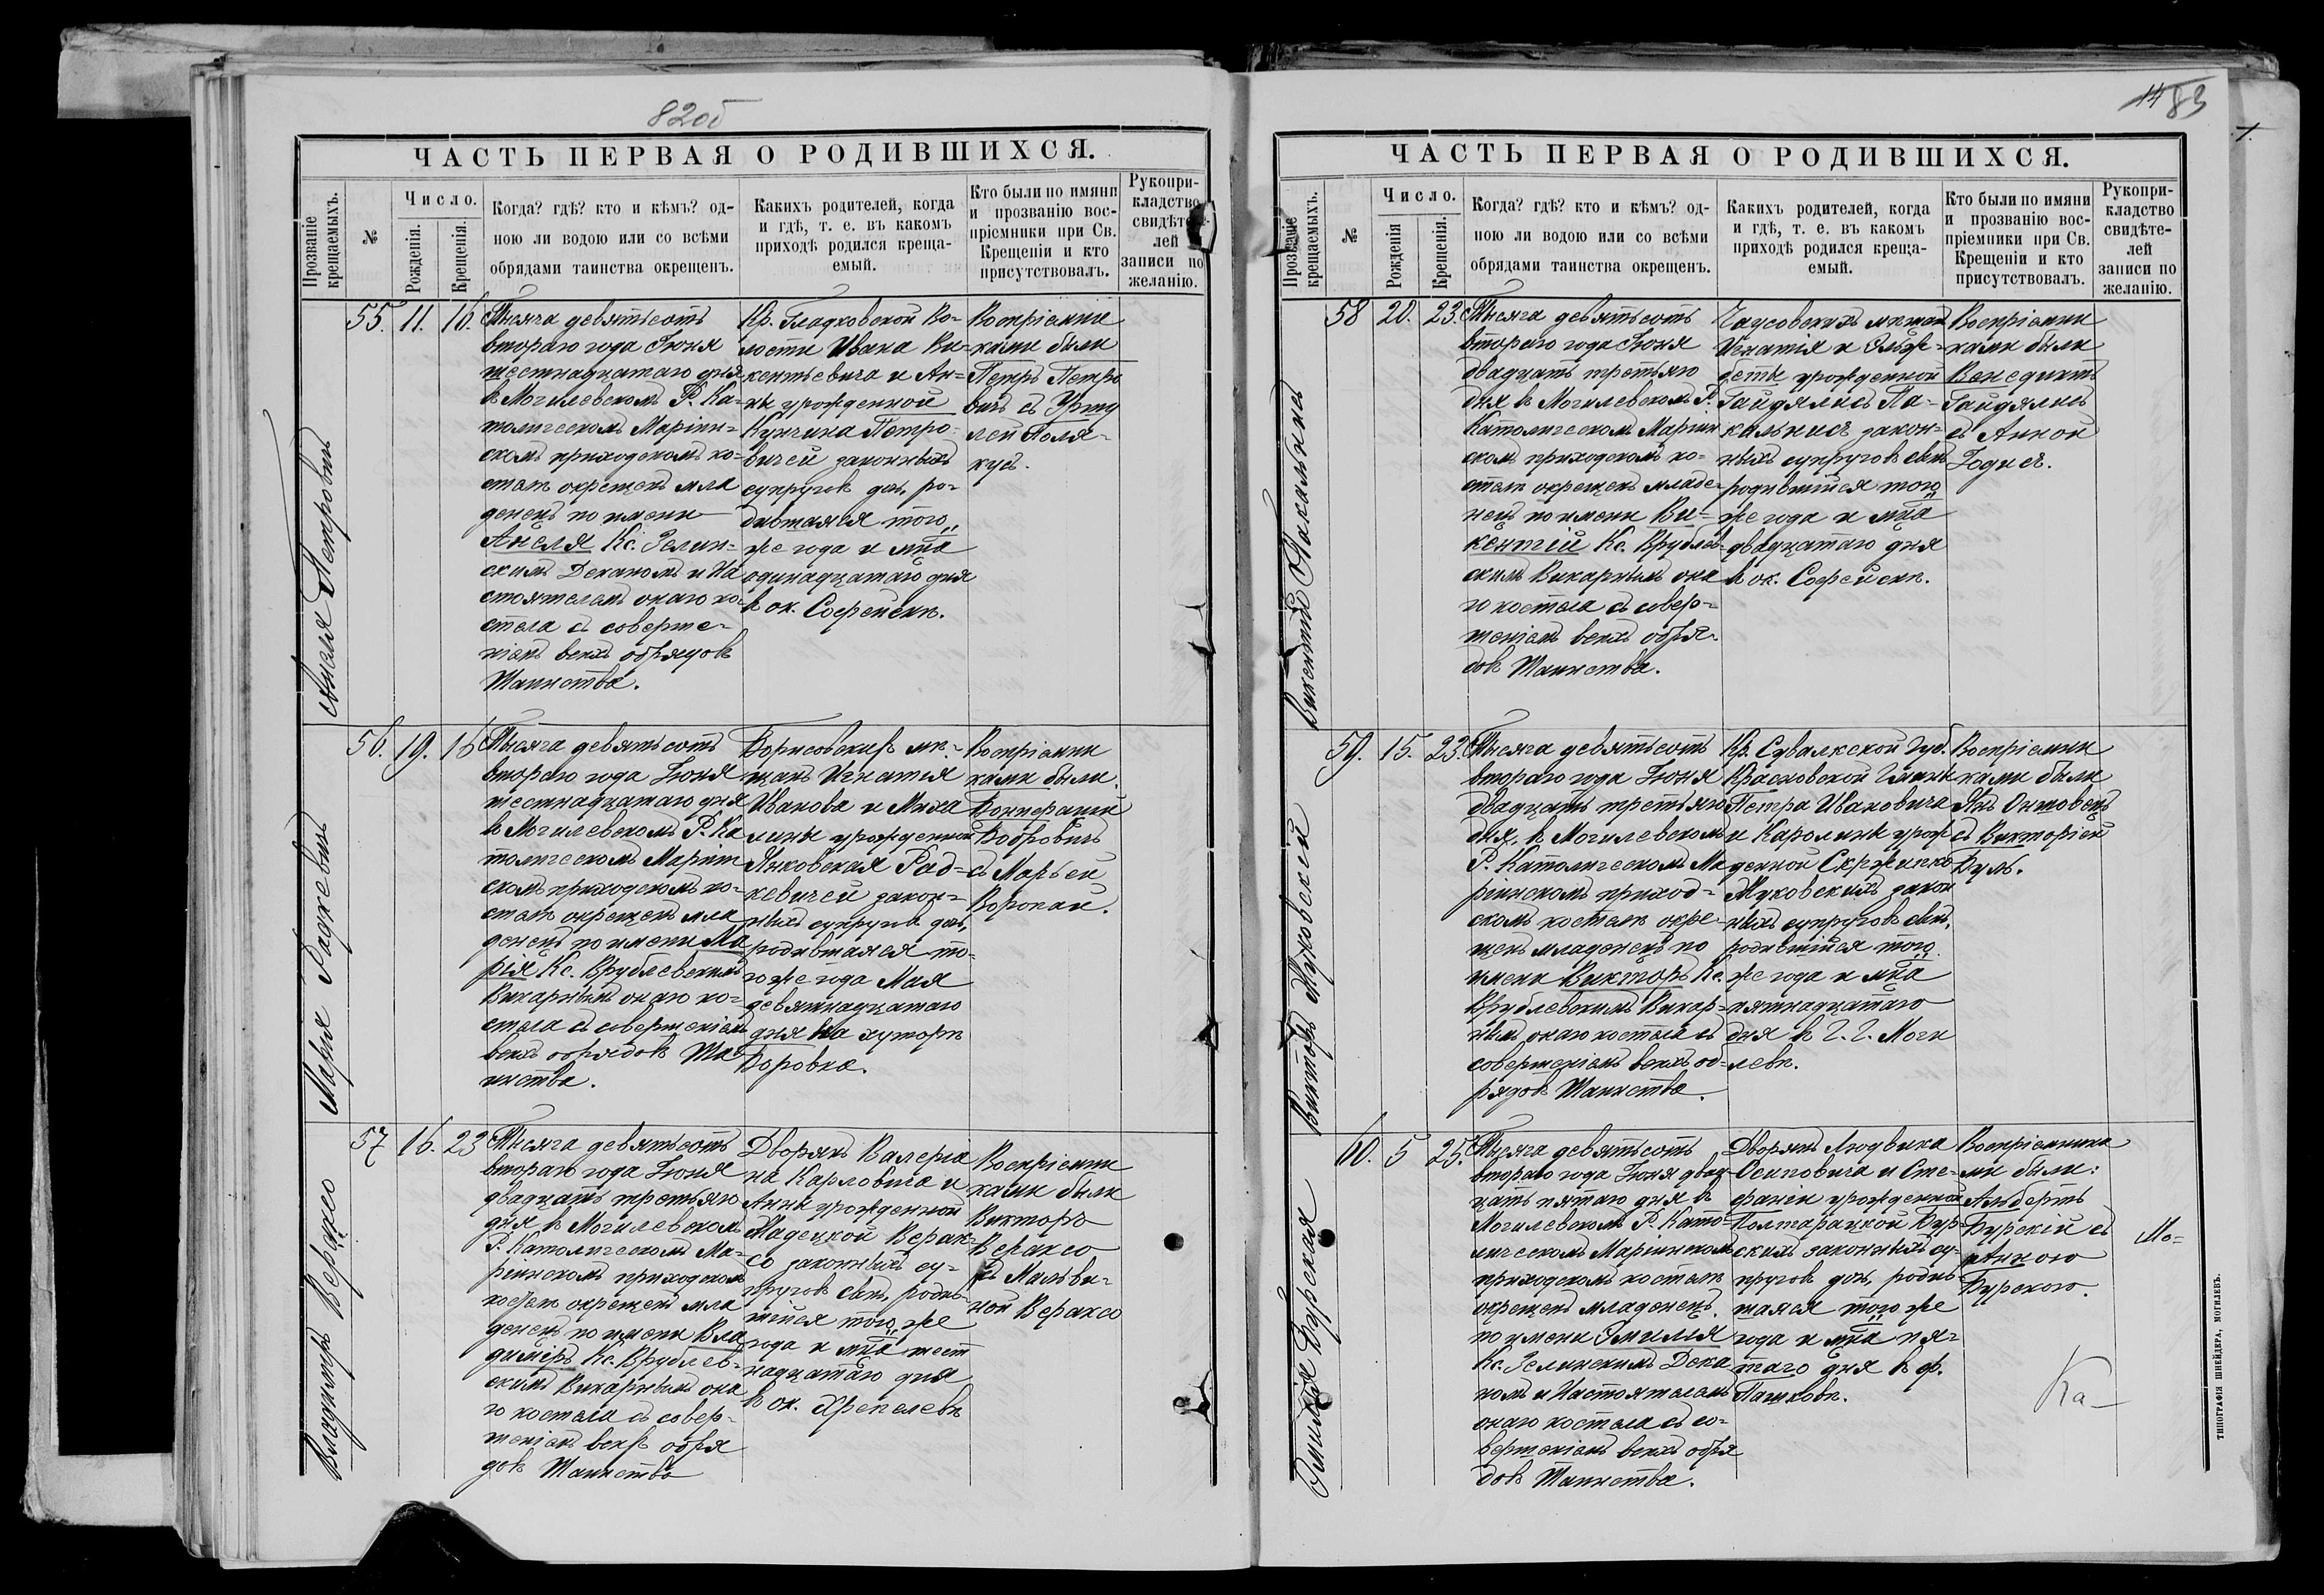 82об
ЧАСТЬ ПЕРВАЯ О РОДИВШИХСЯ.
Прозваніе крещаемыхъ.
№
Число.
Рожденія.
Крещенія.
Когда? гдѣ? кто и кѣмъ? од-
ною ли водою или со всѣми
обрядами таинства окрещенъ.
Какихъ родителей, когда
и гдѣ, т. е. въ какомъ
приходѣ родился креща-
емый.
Кто были по имяни
и прозванію вос-
пріемники при Св.
Крещеніи и кто
присутствовалъ.
Рукопри-
кладство
свидѣте-
лей
записи по
желанію.
Анеля Петровичъ
55. 11. 16.
Тысяча девятьсотъ
втораго года Іюня
шестнадцатаго дня
въ Могилевскомъ Р. Ка-
толическомъ Маріин-
скомъ приходскомъ ко-
стелѣ окрещенъ мла
денецъ по имени
Анеля Кс. Зелин-
скимъ Деканомъ и На
стоятелемъ онаго ко-
стела съ соверше-
ніемъ всѣхъ обрядовъ
Таинства.
Кр. Гладковской Во-
лости Ивана Ви-
кентьевича и Ан-
ны урожденной
Кунчина Петро-
вичей законныхъ
супруговъ дочь, ро-
дившаяся того
же года и мца
одинадцатаго дня
въ ок. Софейскѣ.
Воспріемни
ками были
Петръ Петро
вичъ съ Уршу
лей Поля-
кусъ.
Марія Радкевичъ
56. 19. 16
Тысяча девятьсотъ
втораго года Іюня
шестнадцатаго дня
въ Могилевскомъ Р. Ка
толическомъ Маріин
скомъ приходскомъ ко-
стелѣ окрещенъ мла
денецъ по имени Ма
рія Кс. Врублевскимъ
Викарнымъ онаго ко-
стела съ совершеніемъ
всѣхъ обрядовъ Та-
инства.
Борисовскихъ мѣ-
щанъ Игнатія
Иванова и Миха
лины урожденной
Янковская Рад-
кевичей закон-
ныхъ супруговъ дочь,
родившаяся то-
го же года Мая
девятнадцатаго
дня на хуторѣ
Боровка.
Воспріемни
ками были
Бонифатій
Бобровичъ
съ Марьей
Воронай.
Владиміръ Вераксо
57 16. 23
Тысяча девятьсотъ
втораго года Іюня
двадцать третьяго
дня въ Могилевскомъ
Р. Католическомъ Ма-
ріинскомъ приходскомъ
костелѣ окрещенъ мла
денецъ по имени Вла
диміръ Кс. Врублев-
скимъ Викарнымъ она
го костела съ совер-
шеніемъ всѣхъ обря
довъ Таинства
Дворянъ Валеріа
на Карловича и
Анны урожденной
Жадецкой Верак-
со законныхъ су-
пруговъ сынъ, родив-
шійся того же
года и мца шест
надцатаго дня
въ ок. Хрепелевѣ
Воспріемни
ками были
Викторъ
Вераксо
съ Мальви-
ной Вераксо
83
ЧАСТЬ ПЕРВАЯ О РОДИВШИХСЯ.
Прозваніе крещаемыхъ.
№
Число.
Рожденія
Крещенія.
Когда? гдѣ? кто и кѣмъ? од-
ною ли водою или со всѣми
обрядами таинства окрещенъ.
Какихъ родителей, когда
и гдѣ, т. е. въ какомъ
приходѣ родился креща-
емый.
Кто были по имяни
и прозванію вос-
пріемники при Св.
Крещеніи и кто
присутствовалъ.
Рукопри-
кладство
свидѣте-
лей
записи по
желанію.
Викентій Пакальнисъ
58 20. 23.
Тысяча девятьсотъ
втораго года Іюня
двадцать третьяго
дня въ Могилевскомъ Р.
Католическомъ Маріин
скомъ приходскомъ ко-
стелѣ окрещенъ младе-
нецъ по имени Ви-
кентій Кс. Врублев-
скимъ Викарнымъ она
го костела съ совер-
шеніемъ всѣхъ обря-
довъ Таинства.
Чаусовскихъ мѣщан
Игнатія и Эльж-
беты урожденной
Гайдялисъ Па-
кальнисъ закон-
ныхъ супруговъ сынъ
родившійся того
же года и мца
двадцатаго дня
въ ок. Софейскѣ.
Воспріемни
ками были
Венедиктъ
Гайдялисъ
съ Анной
Годисъ.
Викторъ Жуковскій
59. 15. 23.
Тысяча девятьсотъ
втораго года Іюня
двадцать третьяго
дня, въ Могилевскомъ
Р. Католическомъ Ма
ріинскомъ приход-
скомъ костелѣ окре-
щенъ младенецъ по
имени Викторъ Кс.
Врублевскимъ Викар-
нымъ онаго костела съ
совершеніемъ всѣхъ об-
рядовъ Таинства.
Кр. Сувалкской Губ.
Красновской Гмины
Петра Ивановича
и Каролины урож
денной Скржипко
Жуковскихъ закон
ныхъ супруговъ сынъ,
родившійся того
же года и мца
пятнадцатаго
дня въ Г. Г. Моги
левѣ.
Воспріемни
ками были
Янъ Онтовецъ
съ Викторіей
Буль.
Эмилія Бурская
60. 5 25.
Тысяча девятьсотъ
втораго года Іюня двад-
цать пятаго дня въ
Могилевскомъ Р. Като-
лическомъ Маріинскомъ
приходскомъ костелѣ
окрещенъ младенецъ
по имени Эмилія
Кс. Зелинскимъ Дека
номъ и Настоятелемъ
онаго костела съ со-
вершеніемъ всѣхъ обря
довъ Таинства.
Дворянъ Людвика
Осиповича и Сте-
фаніи урожденной
Полтарацкой Бур-
скихъ законныхъ су-
пруговъ дочь, родив-
шаяся того же
года и мца пя-
таго дня въ ф.
Пашковѣ.
Воспріемника
ми были:
Альбертъ
Бурскій съ
Анною
Бурскою.
Мо-
Ка-
ТИПОГРАФІЯ ШНЕЙДЕРА, МОГИЛЕВЪ.